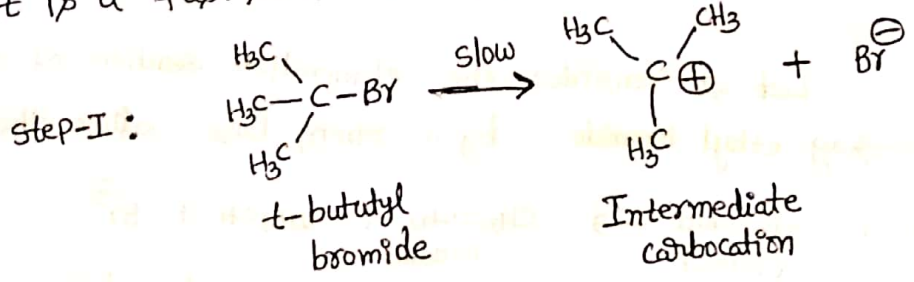 Step-I:
H3C
H3C-C-Br
H3C
Slow
H3C CH3
C ⊕
H3C
+ Br ⊖
t-bututyl
bromide
Intermediate
carbocation